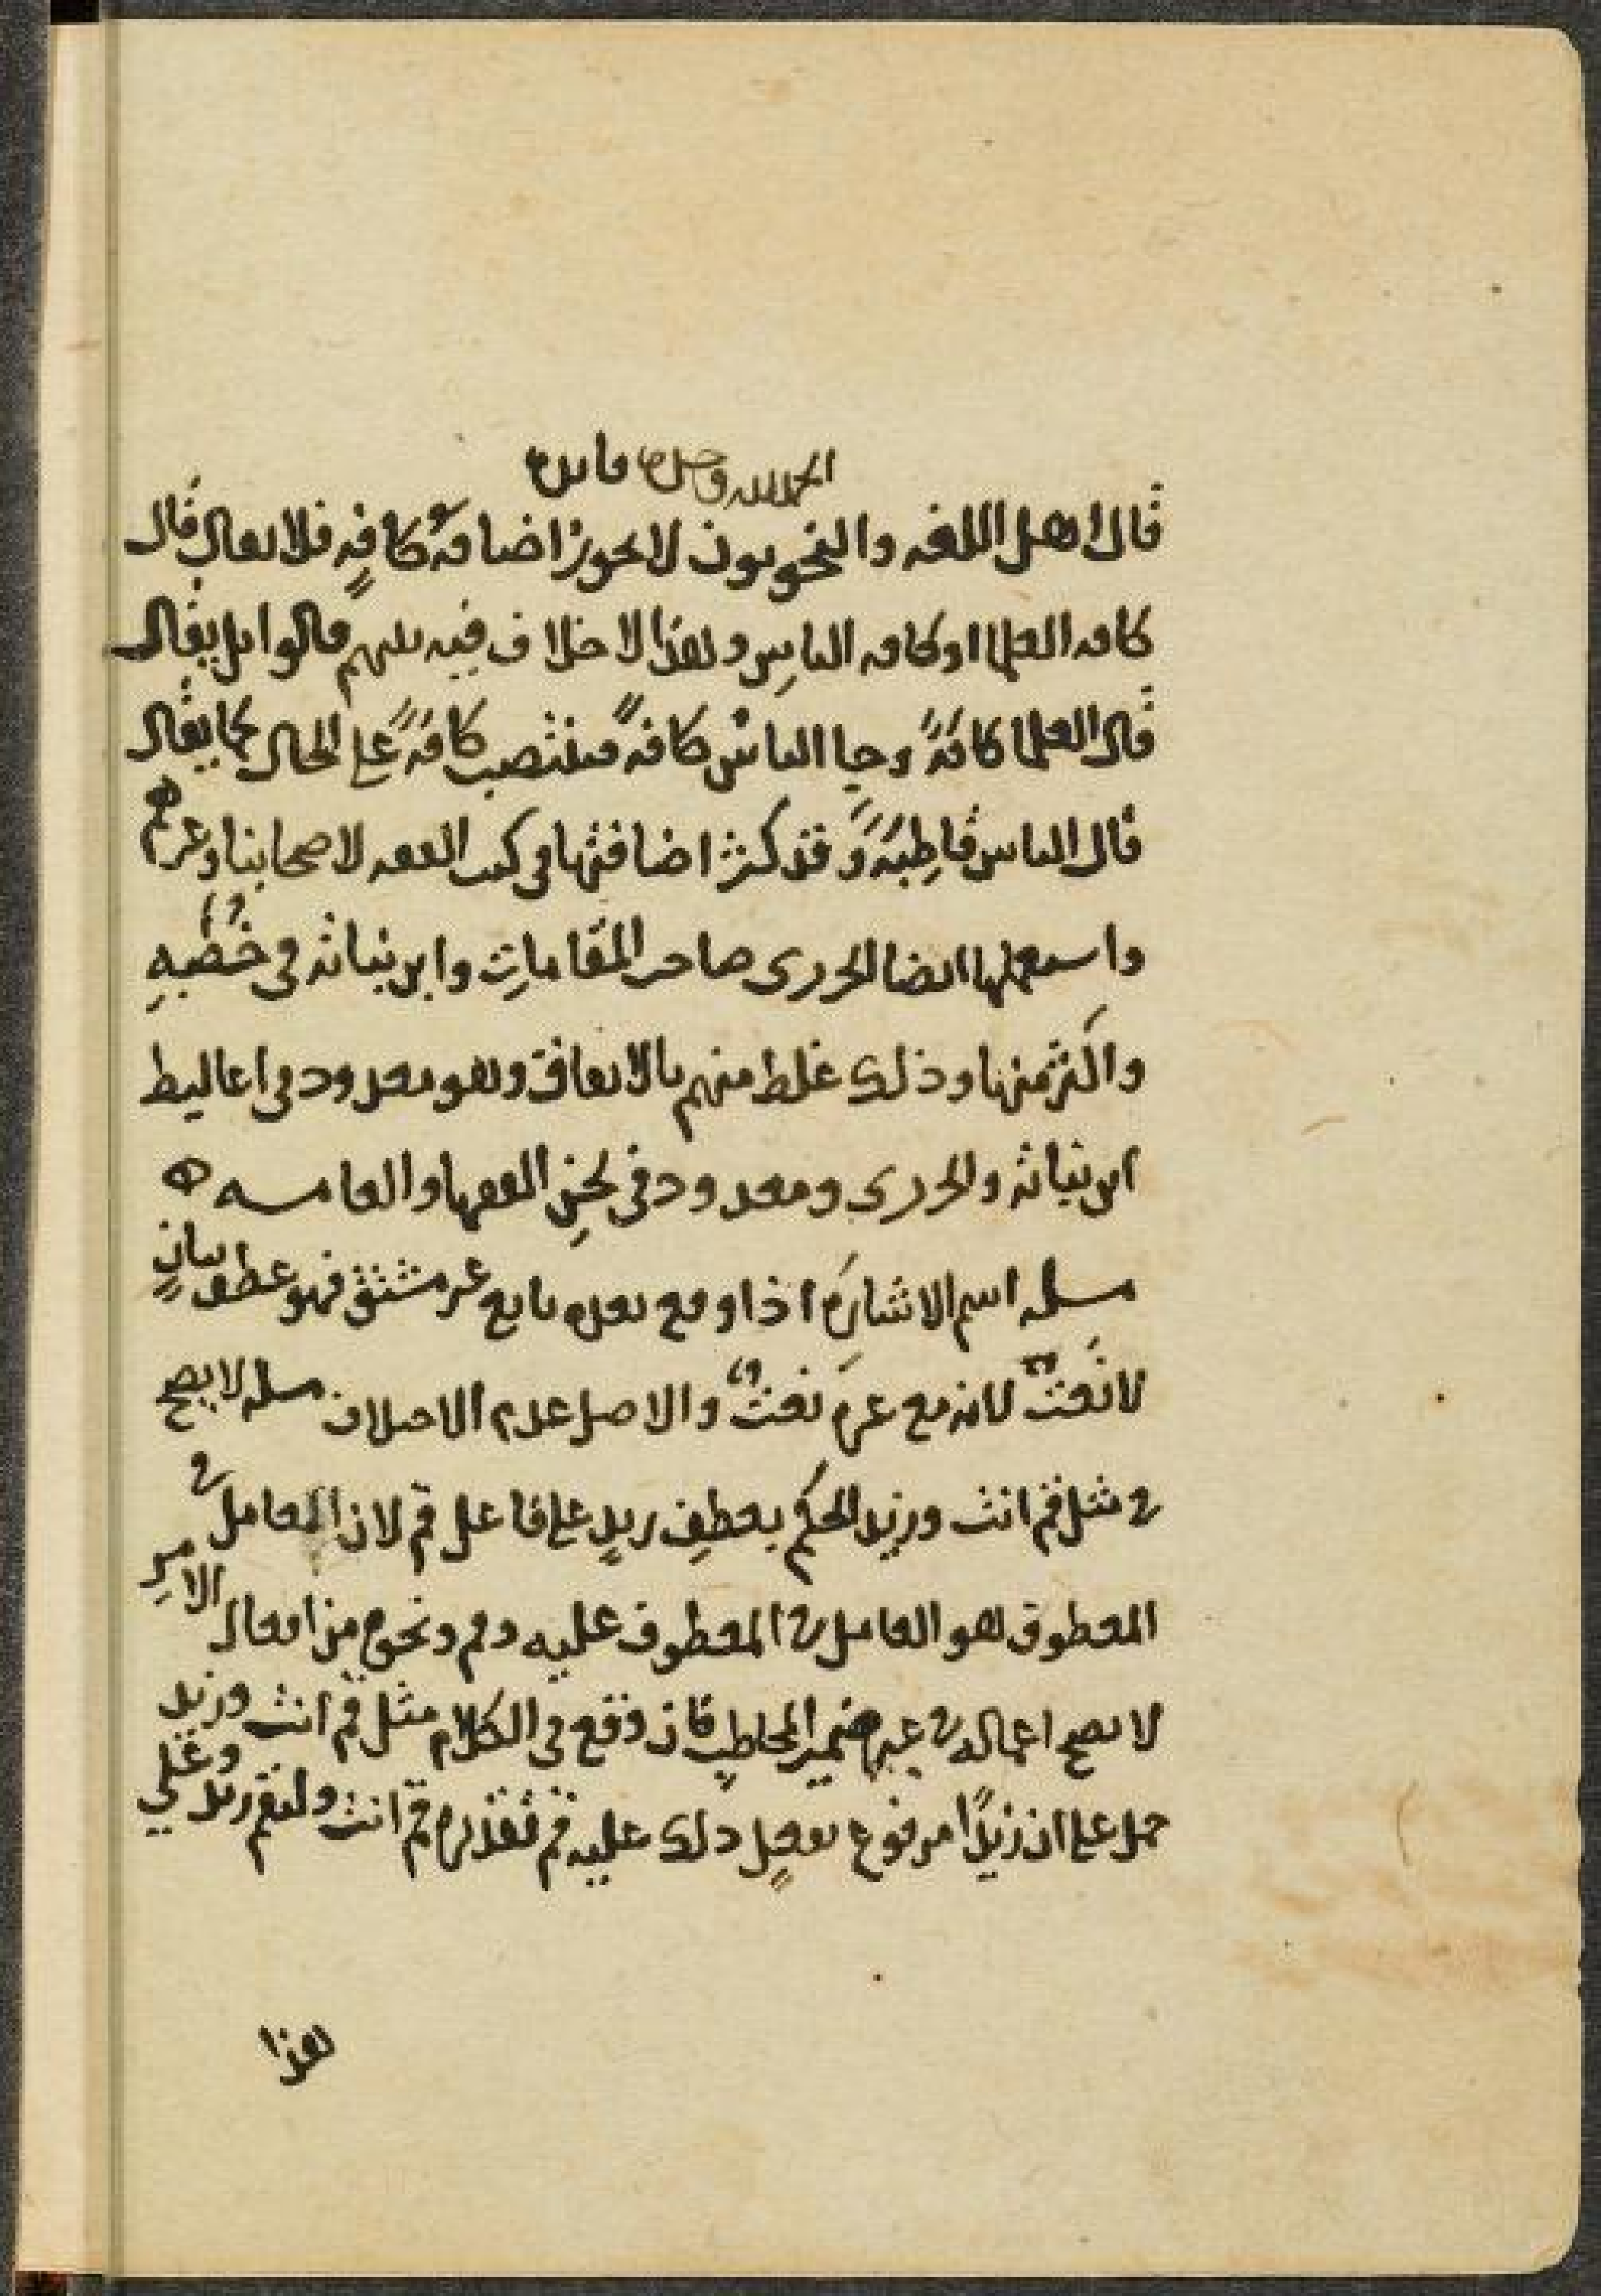 الحمد لله وحده فايده
قال اهل اللغه والنحويون لا يجوز اضافةُ كافةٍ فلا يقال قال
كافه العلما او كافه الناسِ وهذا لا خلاف فيه بينهم قالوا بل يقال
قال العلما كافةً وجا الناسُ كافةً فينتصب كافةً على الحال كما يقال
قال الناس قاطِبَةً وَقد كثر اضافتها في كتب الفقه لاصحابنا وغيرهم
واستعملها ايضا الحريرى صاحب المقاماتِ وابن نباتة في خُطَبِهِ
واكثر منها وذلك غلط منهم بالاتفاق وهو معدود في اغاليط
ابن نباتة والحريرى ومعدود في لحنِ الفقها والعامه ه
مسله اسم الاشارَه اذا وقع بعده تابع غير مشتق فهو عطف بيانٍ
لا نَعت لانه مع غيرِه نعتٌ والاصل عدم الاختلاف مسله لا يصح
في مثل قم انت وزيد الحكم بعطفِ زيدٍ على فاعل قم لان العامل في
المعطوف هو العامل في المعطوف عليه وقم ونحوه من افعال الامرِ
لا يصح اعماله في غير ضمير المخاطب فان وقع في الكلام مثل قم انت وزيد
حمل على ان زيدًا مرفوع بفعلٍ دل عليه قم تقديره قم انت وليقم زيد وعلى
هذا